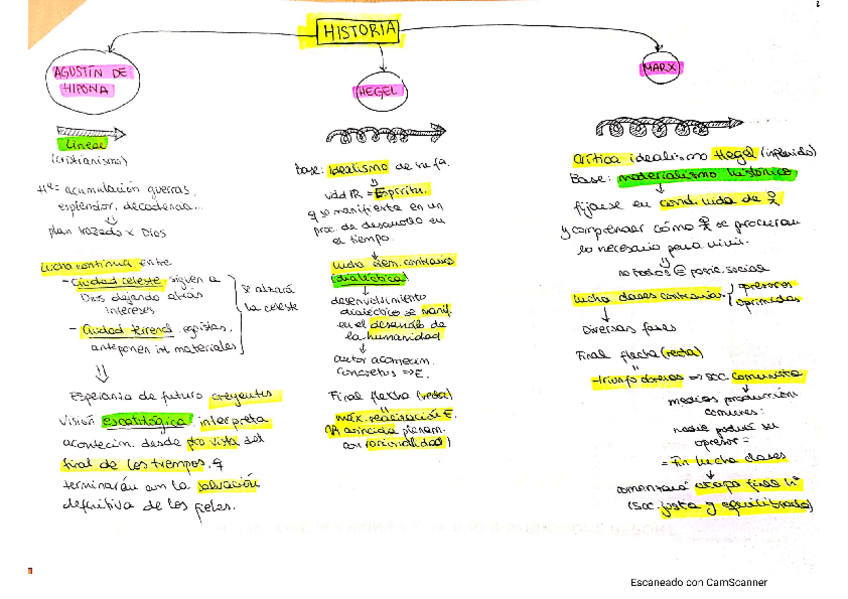 HISTORIA
AGUSTÍN DE
HIPONA
Lineal
(cristianismo)
Hª: acumulación guerras,
esplendor, decadencia...
plan trazado x Dios
Lucha continua entre
- Ciudad celeste siguen a
Dios dejando atrás
intereses
- Ciudad terrena egoistas,
anteponen int materiales
se alzará
la celeste
Esperanza de futuro creyentes
Visión escatológica interpreta
acontecim. desde pto vista del
final de los tiempos, q
terminarán con la salvación
definitiva de los fieles.
HEGEL
Base: Idealismo de
vdd = Espíritu.
q se manifiesta en un
proc. de desarrollo en
el tiempo.
lucha elem. contrarios
(dialéctica)
desenvolvimiento
dialéctico se manif.
en el desarrollo de
la humanidad
acontecim.
concretos => E.
Final flecha (recta)
máx. realización E.
coincida plenam.
con racionalidad)
MARX
Crítica idealismo Hegel (influido)
Base: materialismo histórico
fijarse en cond. vida de
y comprender cómo se procuran
lo necesario para vivir.
no todos = posic. social
lucha clases contrarias
opresores
oprimidos
Diversas fases
Final flecha (recta)
triunfo obreros => soc. comunista
medios producción
comunes:
nadie podrá ser
opresor =
= Fin lucha clases
comenzará etapa final Hª
(soc. justa y equilibrada)
Escaneado con CamScanner